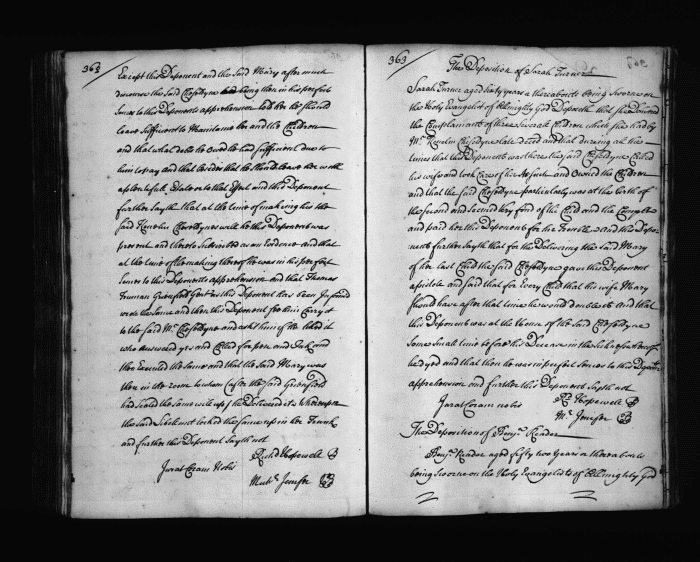 362
Except this Deponent and the Said Mary after much
discourse the Said Cheseldyne being then in his perfect
Senses to this Deponents apprehension told her he should
leave Sufficient to Maintaine her and the Children
and that what debts he owed he had Sufficient due to
him to pay and that besides that he should leave her with
a plentifull Estate or to that Effect and this Deponent
further Sayth that at the time of making his the
Said Kenelm Cheseldynes will he this Deponent was
present and thereto Subscribed as an Evidence and that
at the time of the making thereof he was in his perfect
Senses to this Deponents apprehension and that Thomas
Truman Greenfield Gent as this Deponent has been Informed
wrote the Same and then this Deponent for him Carry it
to the Said Mr Cheseldyne and askt him if he liked it
who answered yes and Called for pen and Ink and
then Executed the Same and that the Said Mary was
then in the roome to whom (after the Said Greenfield
had Seal'd the Same will up) he Delivered it Whereupon
the Said went and locked the Same up in her Trunk
and further this Deponent Sayth not
Jurat Coram Nobis
Richd Hopewell
Mich. Jenifer
363
The Deposition of Sarah Turner
Sarah Turner aged Sixty years or thereabouts being Sworne on
the Holy Evangelist of Almighty God Deposeth that She Delivered
the Complainants of three Severall Children which She had by
Mr Kenelm Cheseldyne late deced and that during all the
times that this Deponent was there the said Cheseldyne Called
his wife and took Care of her as such and Owned the Children
and that the said Cheseldyne particularly was at the birth of
the Second and Seemed Very fond of the Child and the Complt
and paid her this Deponent for her Trouble And this Depo-
nent further Sayth that for the Delivering the Said Mary
of her last Child the Said Cheseldyne gave this Deponent
a pistole and Said that for Every Child that his wife Mary
Should have after that time he would double it And that
this Deponent was at the House of the Said Cheseldyne
Some Small time before his Decease in the Sickness whereof
he dyed and that then he was in perfect Senses to this Deponts
apprehension and further this Deponent Sayth not
Jurat Coram nobis
Rd Hopewell
Ml Jenifer
The Depositions of Benja Reader
Benja Reader aged fifty two Years or thereabouts
being Sworne on the Holy Evangelists of Allmighty God